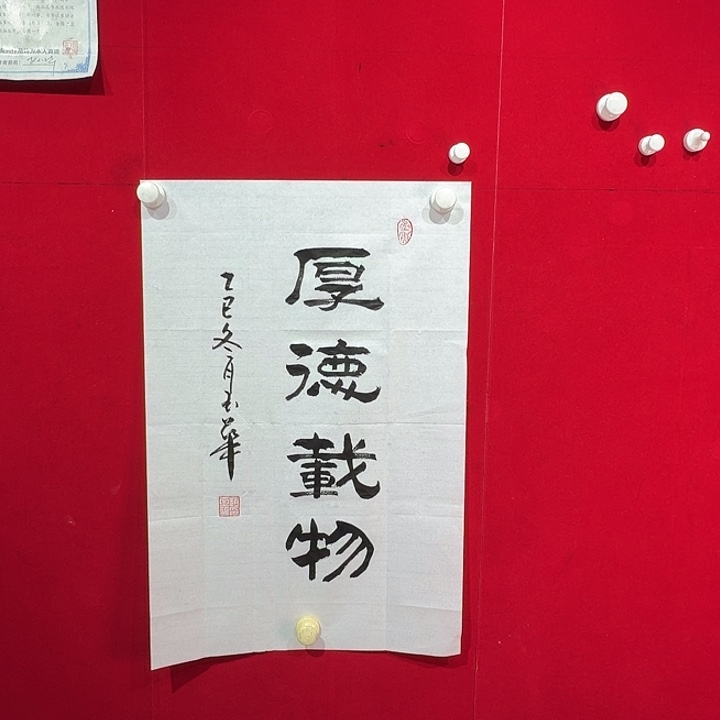 厚德載物
乙巳冬月玉華